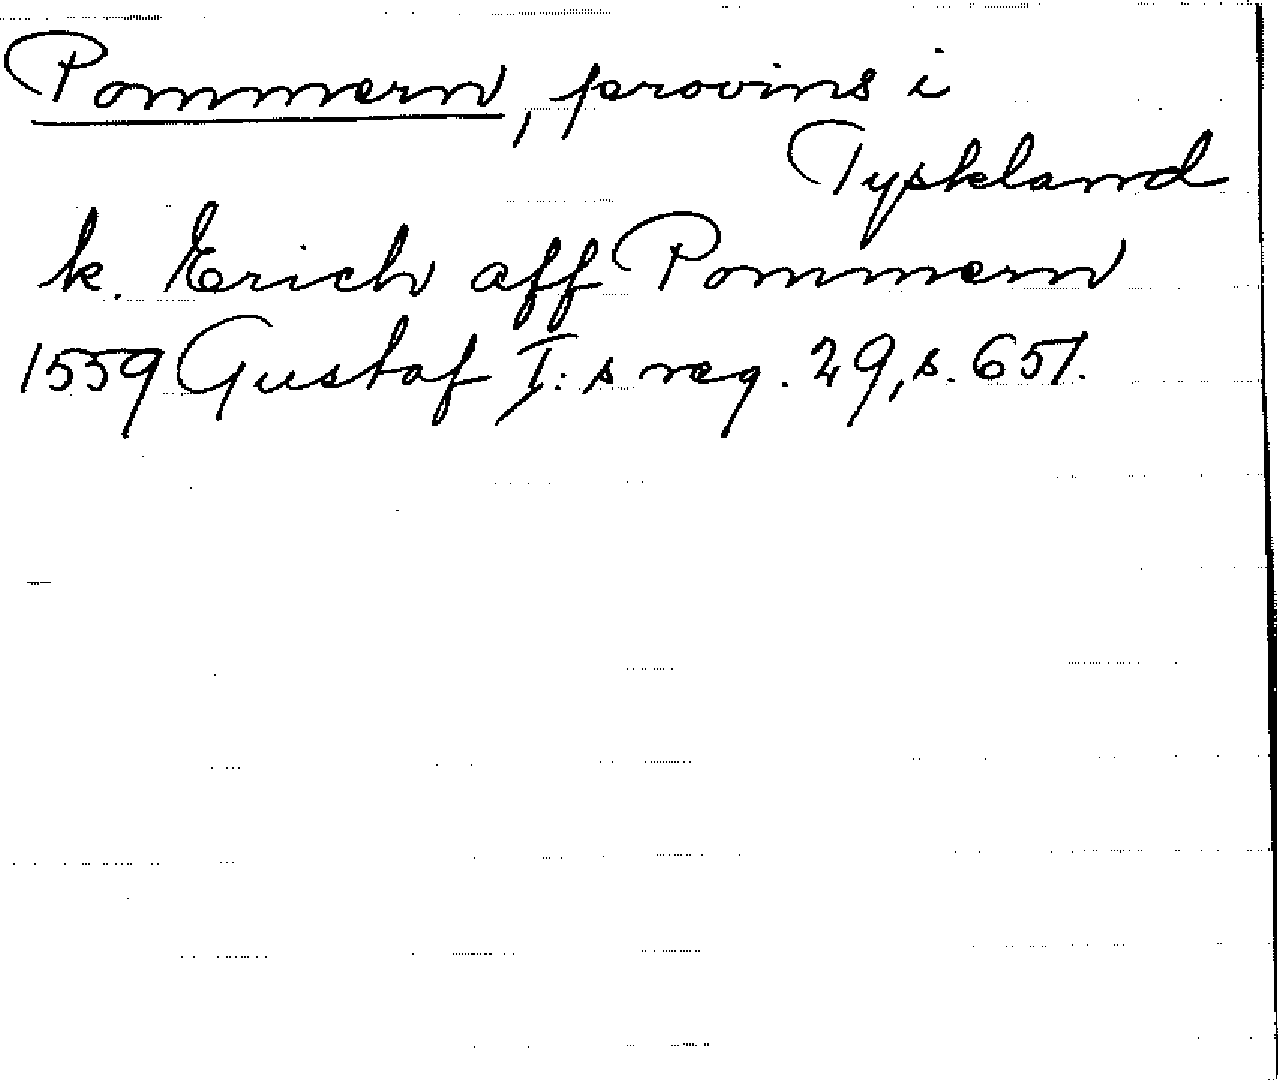 Pommern, provins i
Tyskland
k. Erich aff Pommern
1559 Gustaf I:s reg. 29, s. 651.